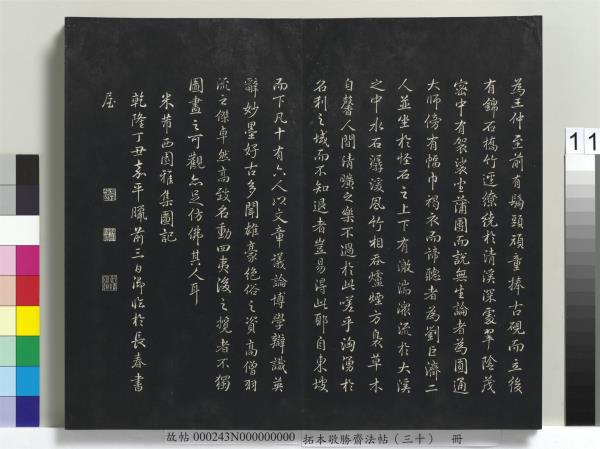 為王仲至前有鬅頭頑童捧古硯而立後
有錦石橋竹逕繚繞於清溪深處翠陰茂
密中有袈裟坐蒲團而說無生論者為圓通
大師傍有幅巾褐衣而諦聽者為劉巨濟二
人並坐於怪石之上下有激湍潨流於大溪
之中水石潺湲風竹相吞爐煙方裊草木
自馨人間清曠之樂不過於此嗟乎洶湧於
名利之域而不知退者豈易得此耶自東坡
而下凡十有六人以文章議論博學辯識英
辭妙墨好古多聞雄豪絕俗之資高僧羽
流之傑卓然高致名動四夷後之攬者不獨
圖畫之可觀亦足仿佛其人耳
米芾西園雅集圖記
乾隆丁丑嘉平臘前三日御臨於長春書
屋
故帖 000243N000000000 拓本敬勝齋法帖（三十） 冊
1 1
1